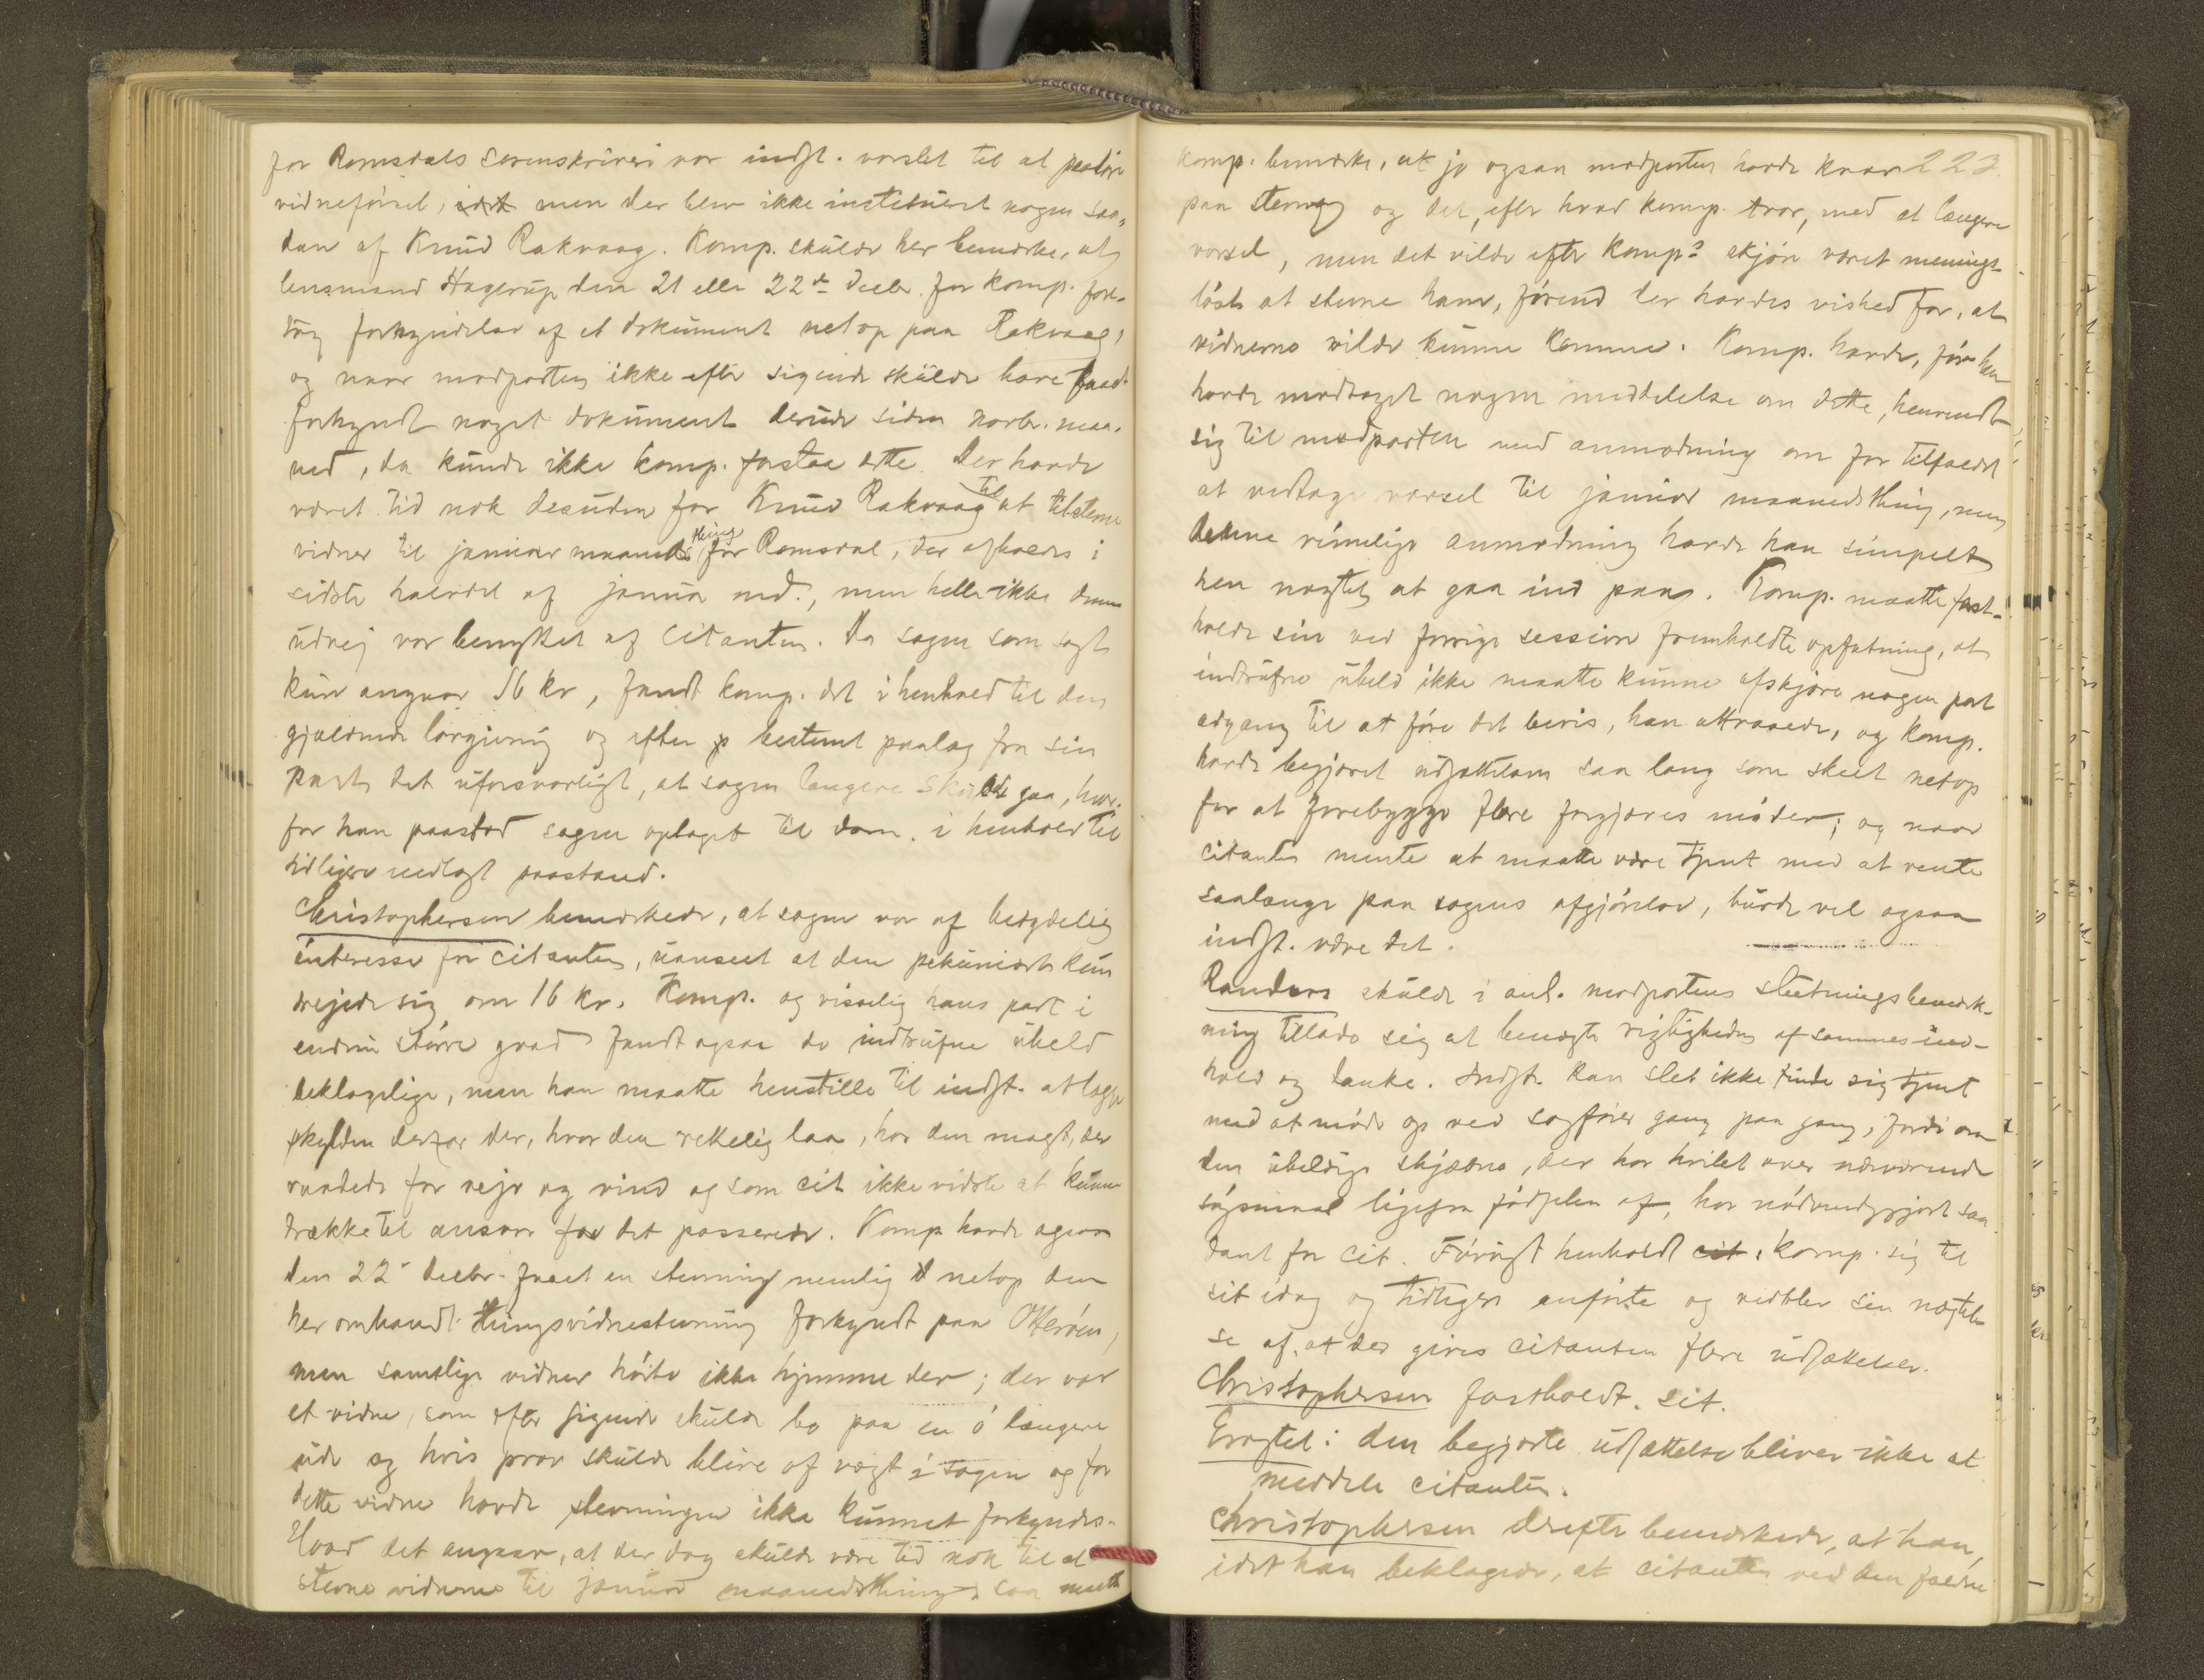 for Romsdals sorenskriveri var indst. varslet til at paahøre
vidneførsel, men der blev ikke institueret nogen saa-
dan af Knud Rakvaag. Komp. skulde her bemærke, at
lensmand Hagerup den 21 eller 22de decbr. for komp. fore-
tog forkyndelse af et dokument netop paa Rakvaag,
og naar modparten ikke efter sigende skulde have faaet
forkyndt noget dokument derude siden novbr. maa-
ned, da kunde ikke komp. forstaa dette. Der havde
været tid nok desuden for Knud Rakvaag til at tilstevne
vidner til januar maaneds thing for Romsdal, der afholdes i
sidste halvdel af januar md., men heller ikke denne
udvej var benyttet af citanten. Da sagen som sagt
kun angaar 16 kr, fandt komp. det i henhold til den
gjældende lovgivning og efter bestemt paalæg fra sin
part det uforsvarligt, at sagen længere skulde gaa, hvor-
for han paastod sagen optaget til dom i henhold til
tidligere nedlagt paastand.
Christophersen bemærkede, at sagen var af betydelig
interesse for citanten, uanseet at den pekuniært kun
drejede sig om 16 kr. Komp. og visselig hans part i
endnu større grad fandt ogsaa de indtrufne uheld
beklagelige, men han maatte henstille til indst. at lægge
skylden derfor der, hvor den rettelig laa, hos den magt, der
raadede for vejr og vind og som cit ikke vidste at kunne
trække til ansvar for det passerede. Komp. havde ogsaa
den 22' decbr. faaet en stevning nemlig netop den
her omhandl. thingsvidnestevning forkyndt paa Otterøen,
men samtlige vidner hørte ikke hjemme der; der var
et vidne, som efter sigende skulde bo paa en ø længere
ude og hvis prov skulde blive af vægt i sagen og for
dette vidne havde stevningen ikke kunnet forkyndes.
Hvad det angaar, at der dog skulde være tid nok til at
stevne vidnerne til januar maanedsthing, saa maatte
komp. bemærke, at jo ogsaa modparten havde krav 223
paa stevning og det, efter hvad komp. tror, med et længere
varsel, men det vilde efter komp.s skjøn været menings-
løst at stevne ham, førend der havdes vished for, at
vidnerne vilde kunne komme. Komp. havde, før han
havde modtaget nogen meddelelse om dette, henvendt
sig til modparten med anmodning om for tilfældet
at vedtage varsel til januar maanedsthing, men
denne rimelige anmodning havde han simpelt
hen nægtet at gaa ind paa. Komp. maatte fast-
holde sin ved forrige session fremholdte opfatning, at
indtrufne uheld ikke maatte kunne afskjære nogen part
adgang til at føre det bevis, han attraaede, og komp.
havde begjæret udsættelsen saa lang som skeet netop
for at forebygge flere forgjæves møder; og naar
citanten mente at maatte være tjent med at vente
saalænge paa sagens afgjørelse, burde vel ogsaa
indst. være det.
Randers skulde i anl. modpartens slutningsbemærk-
ning tillade sig at benægte rigtigheden af sammes ind-
hold og tanke. Indst. kan slet ikke finde sig tjent
med at møde op ved sagfører gang paa gang, fordi om
den uheldige skjæbne, der har hvilet over nærværende
søgsmaal ligefra fødselen af, har nødvendiggjort saa
dant for cit. Forøvrigt henholdt komp. sig til
sit idag og tidligere anførte og vedblev sin nægtel-
se af, at der gives citanten flere udsættelser.
Christophersen fastholdt sit.
Eragtet: den begjærte udsættelse bliver ikke at
meddele citanten.
Christophersen derefter bemærkede, at han,
idet han beklagede, at citanten ved den faldne